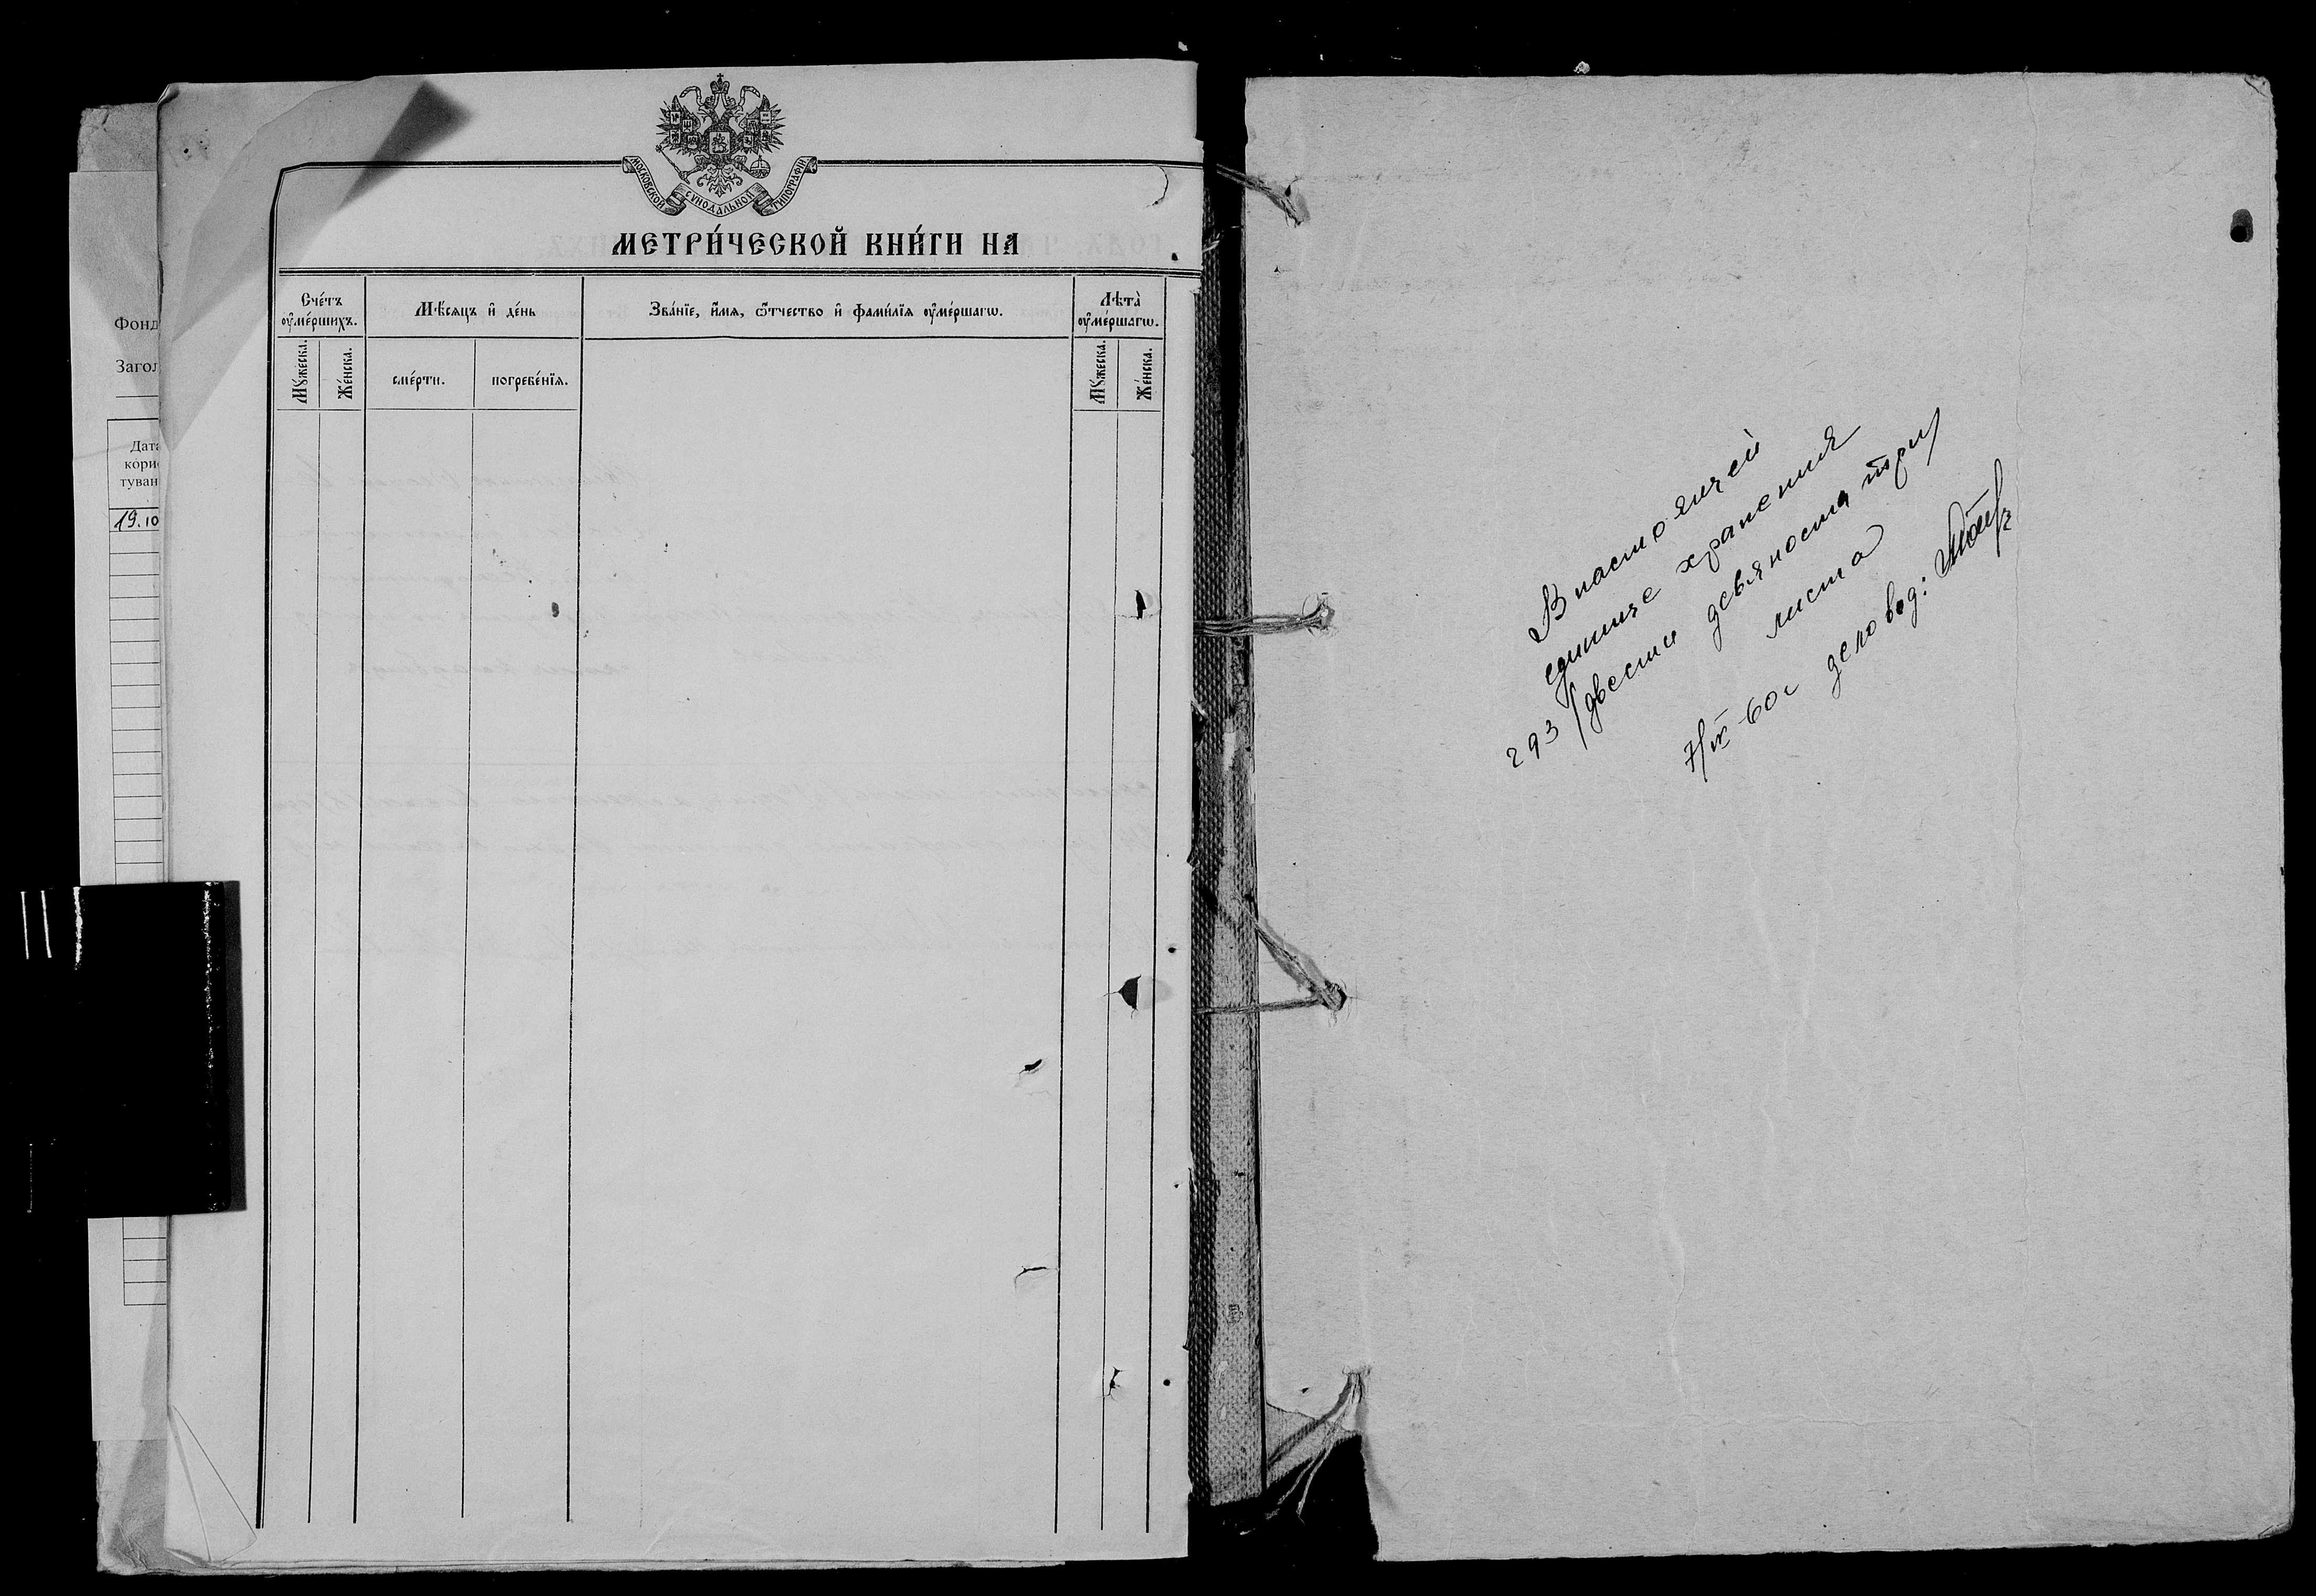 Фонд
Загол
Дата
корис
туван
19.10
МОСКОВСКОЙ СѴНОДАЛЬНОЙ ТИПОГРАФІИ
МЕТРИ́ЧЕСКОЙ КНИ́ГИ НА
Сче́тъ
оу҆ме́ршихъ.
Мѣ́сяцъ и҆ де́нь
Зва́нїе, и҆́мя, ѻ҆́тчество и҆ фами́лїя оу҆ме́ршагѡ.
Лѣта̀
оу҆ме́ршагѡ.
Мꙋ́жеска.
Же́нска.
сме́рти.
погребе́нїя.
Мꙋ́жеска.
Же́нска.
В настоящей
единице хранения
293 /двести девяноста три/
листа
7/IX-60г деловод: